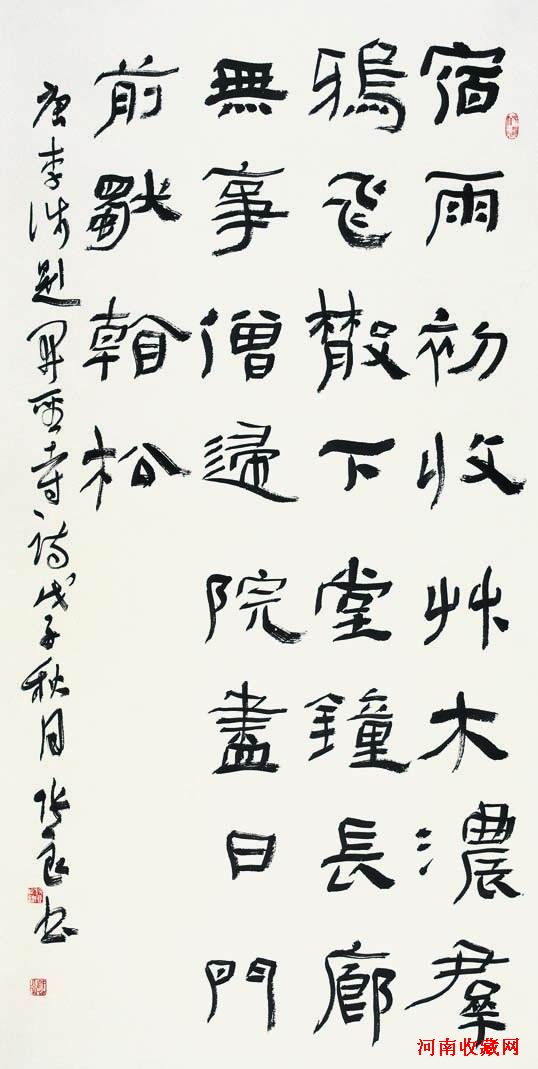 宿雨初收艸木濃羣
鴉飛散下堂鐘長廊
無事僧歸院盡日門
前獨看松
唐李涉題開聖寺詩戊子秋月良书
河南收藏网